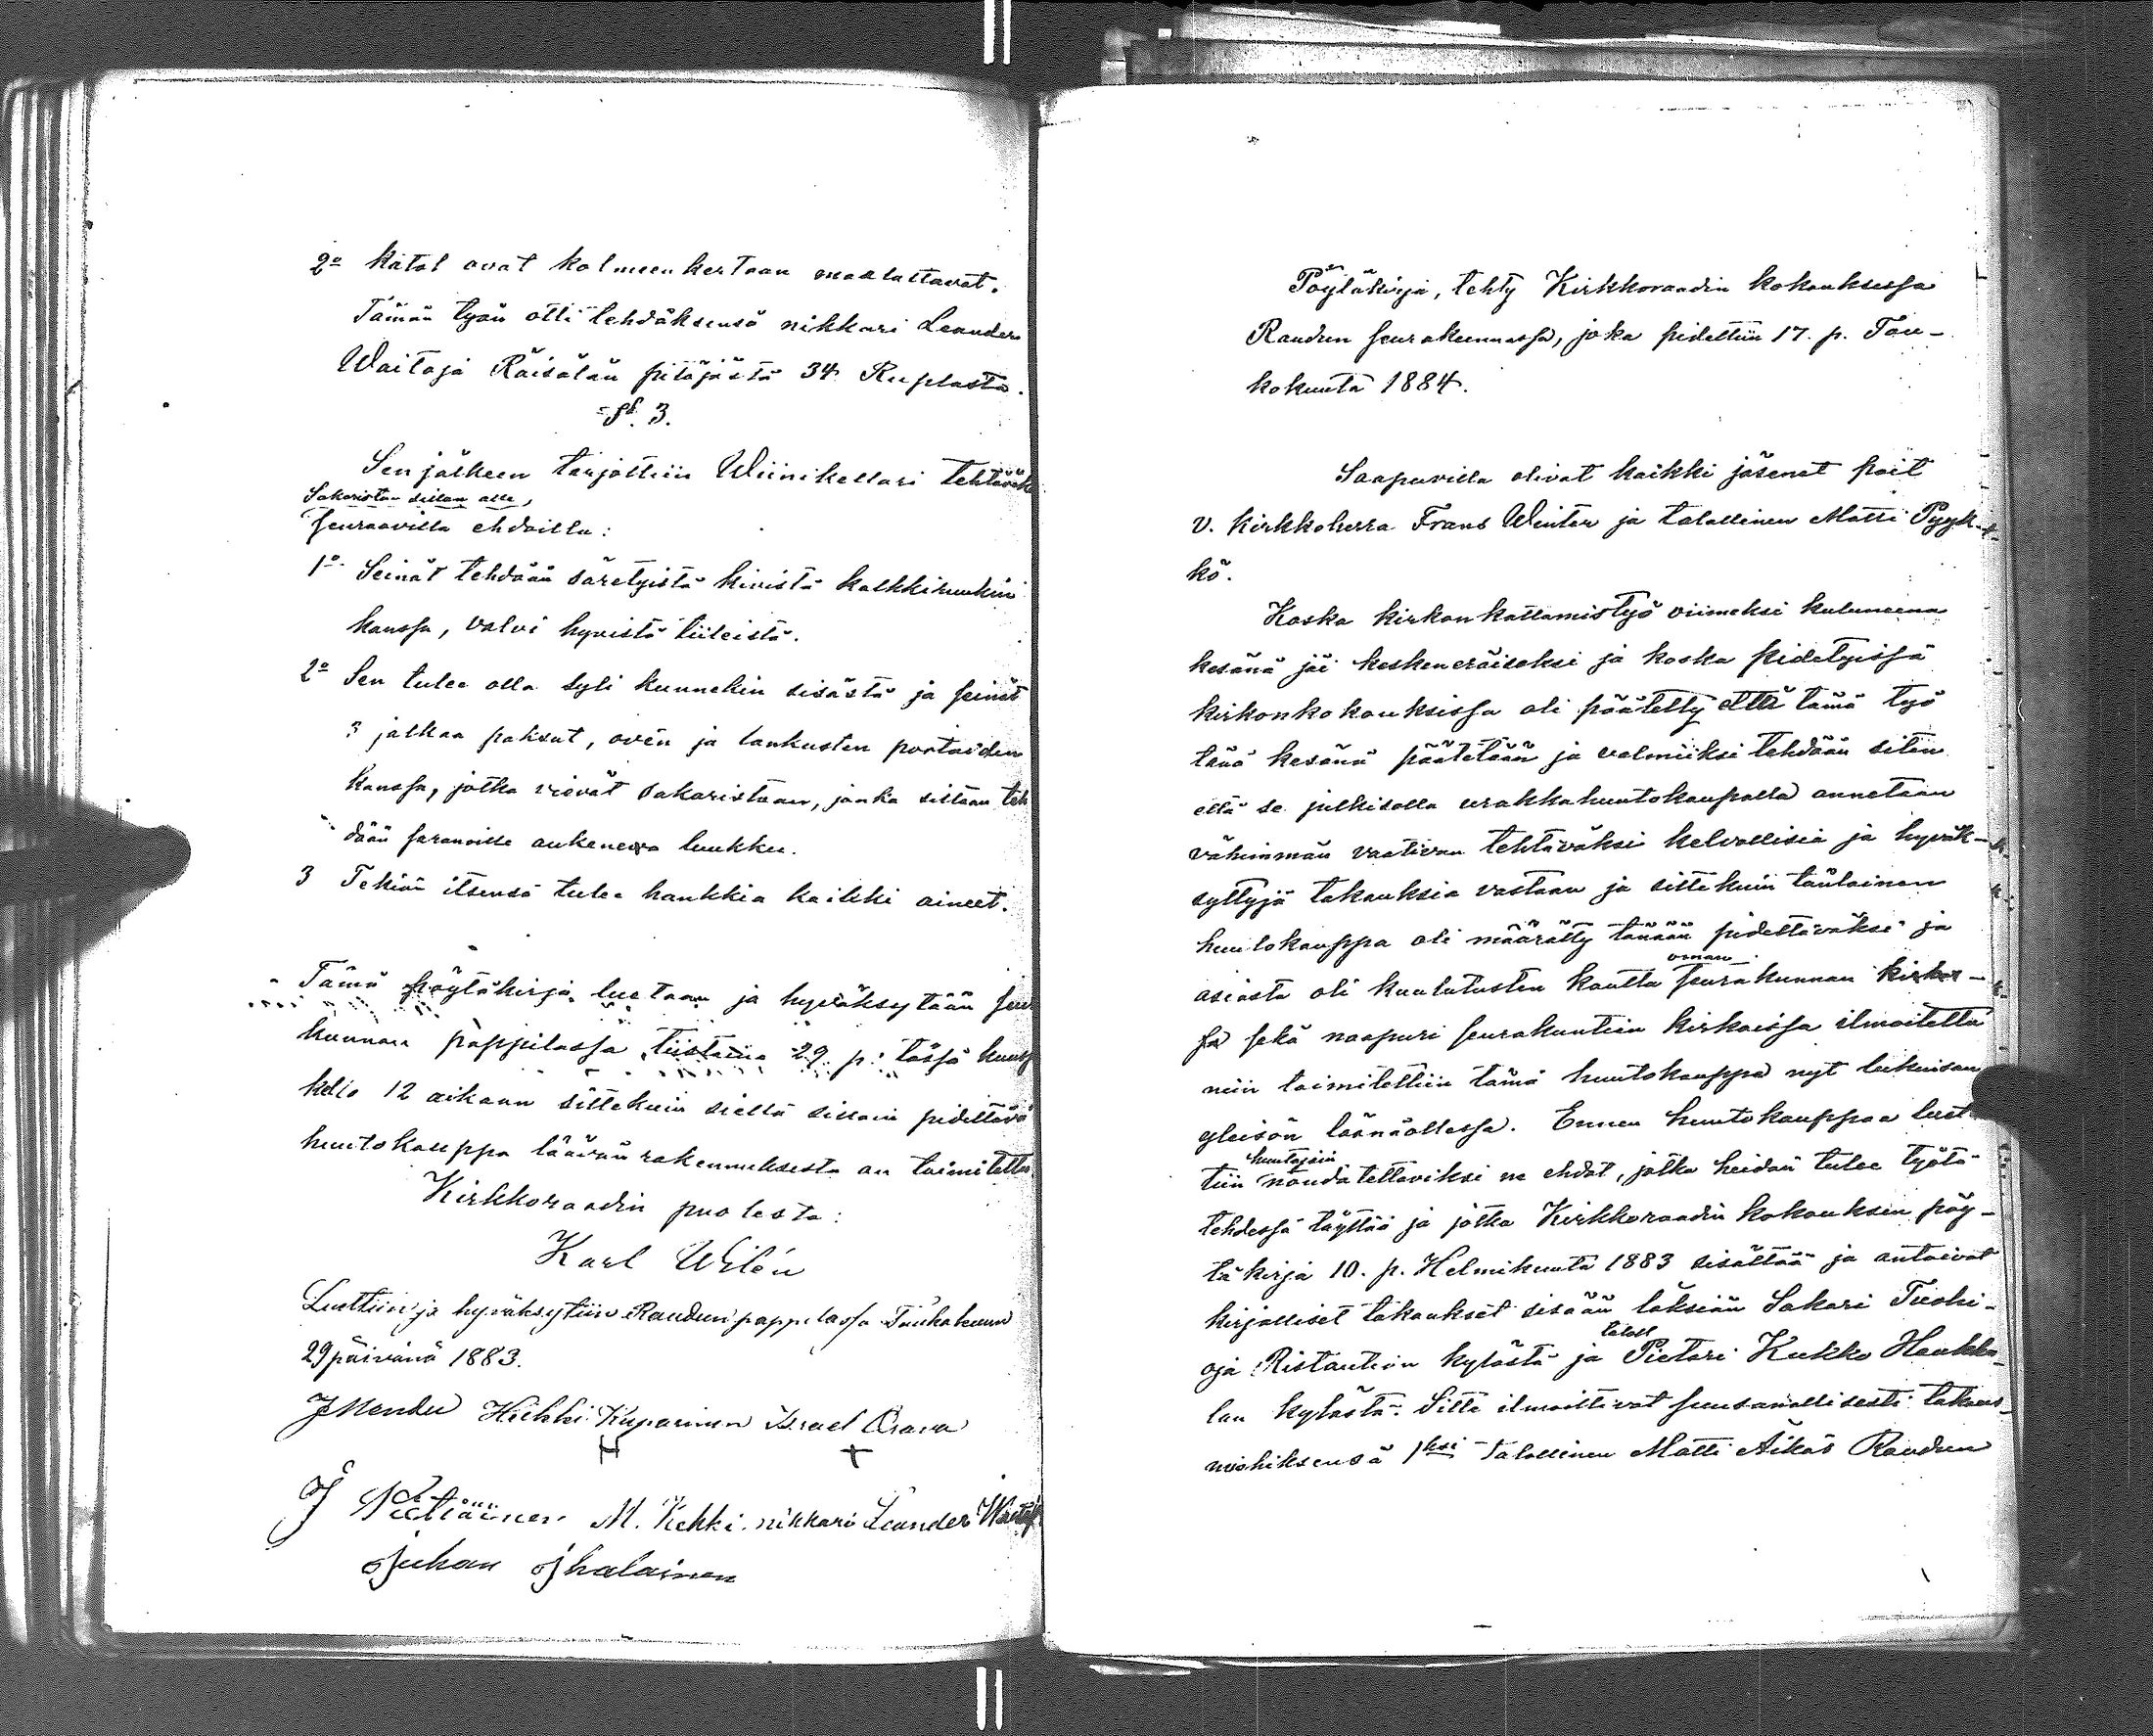 2o Katot ovat kolmeenkertaan maalattavat.
Tämän työn otti tehdäksensä nikkari Leander
Waitaja Räisälän pitäjästä 34 Ruplasta.
§ 3.
Sen jälkeen tarjottiin Wiinikellari tehtäväk
Sakaristan sillan alle,
seuraavilla ehdoilla:
1o Seinät tehdään säretyistä kivistä kalkkiruukin
kanssa, valvi hyvistä tiileistä.
2o Sen tulee olla syli kunnekin sisästä ja seinät
3 jalkaa paksut, oven ja lankusten portaiden
kanssa, jotka vievät Sakaristaan, jonka siltaan teh
dään saranoille aukeneva luukku.
3 Tekiän itsensä tulee hankkia kaikki aineet.
Tämä pöytäkirja luetaan ja hyväksytään seura
kunnan pappilassa tiistaina 29 p: tässä kuussa
kello 12 aikaan sittekuin siellä silloin pidettävä
huutokauppa läävän rakennuksesta on toimitettu.
Kirkkoraadin puolesta:
Karl Wilén
Luettiin ja hyväksytiin Raudun pappilassa Toukokuun
29 päivänä 1883.
J Mender Heikki Kuparinen Israel Orava
J Pietiäinen M. Kekki nikkari Leander Waitaja
Juhan Ihalainen
Pöytäkirja, tehty Kirkkoraadin kokouksessa
Raudun seurakunnassa, joka pidettiin 17. p. Tou-
kokuuta 1884.
Saapuvilla olivat kaikki jäsenet pait
v. kirkkoherra Frans Winter ja talollinen Matti Pyyk-
kö.
Koska kirkon kattamistyö viimeksi kuluneena
kesänä jäi keskeneräiseksi ja koska pidetyissä
kirkonkokouksissa oli päätetty että tämä työ
tänä kesänä päätetään ja valmiiksi tehdään siten
että se julkisella urakkahuutokaupalla annetaan
vähimmän vaativan tehtäväksi kelvollisia ja hyväk-
syttyjä takauksia vastaan ja sittekuin tänlainen
huutokauppa oli määrätty tänään pidettäväksi ja
oman
asiasta oli kuulutusten kautta seurakunnan kirkos-
sa sekä naapuri seurakuntien kirkoissa ilmoitettu
niin toimitettiin tämä huutokauppa nyt lukuisan
yleisön läänäollessa. Ennen huutokauppaa luet-
huutajain
tiin noudatettaviksi ne ehdot, jotka heidän tulee työtä
tehdessä täyttää ja jotka Kirkkoraadin kokouksen pöy-
täkirja 10. p. Helmikuuta 1883 sisältää ja antoivat
kirjalliset takaukset sisään läksiän Sakari Tuoki-
talol
oja Ristautiin kylästä ja Pietari Kukko Haukka-
lan kylästä. Sitte ilmoittivat suusanallisesti takaus-
miehiksensä 1ksi Talollinen Matti Äikäs Raudun